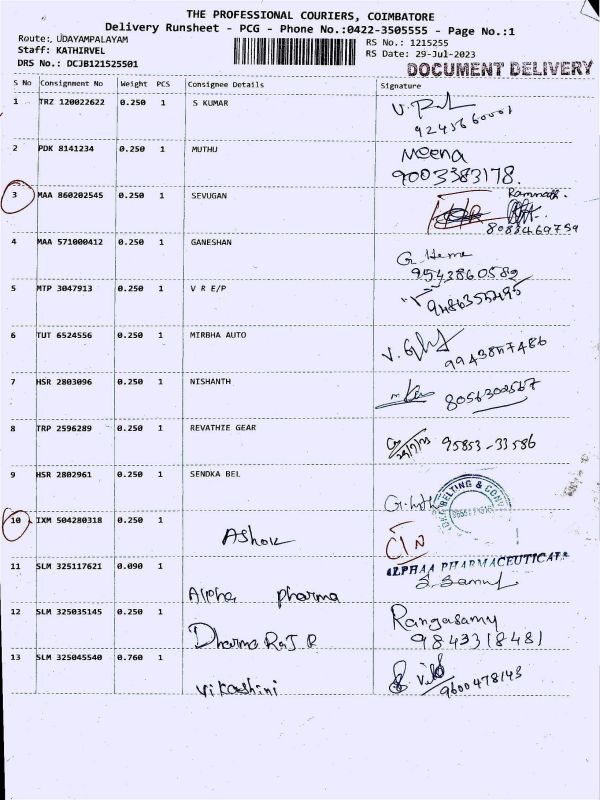 THE PROFESSIONAL COURIERS, COIMBATORE
Delivery Runsheet - PCG - Phone No.:0422-3505555 - Page No.:1
Route:, UDAYAMPALAYAM
Staff: KATHIRVEL
DRS No.: DCJB121525501
RS No.: 1215255
RS Date: 29-Jul-2023
DOCUMENT DELIVERY
S No Consignment No Weight PCS Consignee Details Signature
1 TRZ 120022622 0.250 1 S KUMAR
2 PDK 8141234 0.250 1 MUTHU Meena
9003383178.
3 MAA 860202545 0.250 1 SEVUGAN Ramnath.
8088469759
4 MAA 571000412 0.250 1 GANESHAN G. Hema
9543860589
5 MTP 3047913 0.250 1 V R E/P
9486355495
6 TUT 6524556 0.250 1 MIRBHA AUTO
9943857486
7 HSR 2803096 0.250 1 NISHANTH
8056302567
8 TRP 2596289 0.250 1 REVATHIE GEAR
29/7/23 95853-33586
9 HSR 2802961 0.250 1 SENDKA BEL
BELTING & CONV
10 IXM 504280318 0.250 1 Ashok C/N
11 SLM 325117621 0.090 1 Alpha pharma ALPHAA PHARMACEUTICALS
12 SLM 325035145 0.250 1 Dharma Raj. R Rangasamy
9843318481
13 SLM 325045540 0.760 1 Vikashini
9600478143